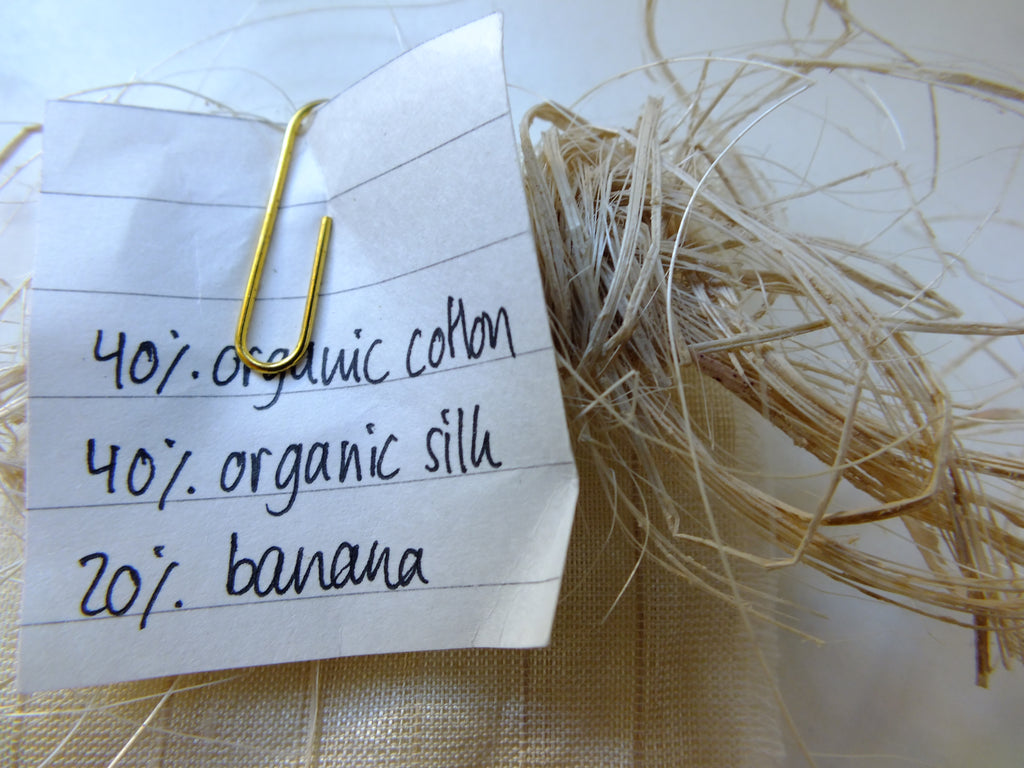 40% organic cotton
40% organic silk
20% banana